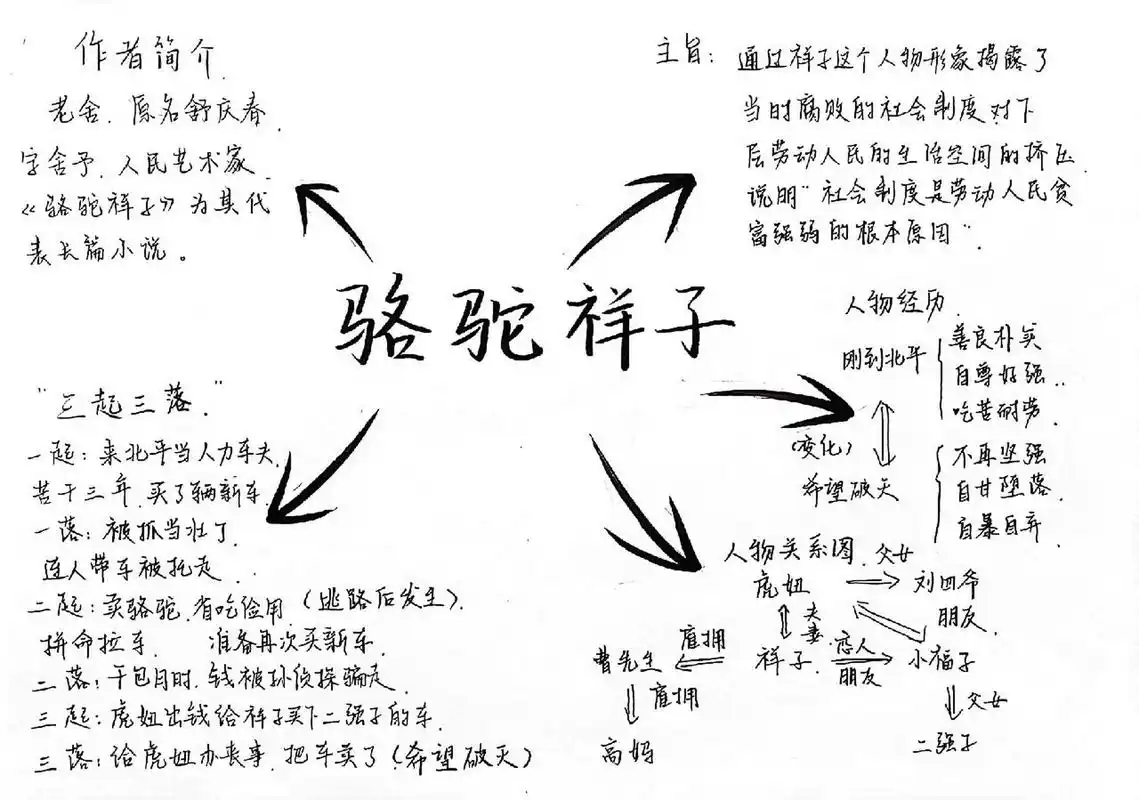 作者简介
老舍.原名舒庆春.
字舍予.人民艺术家.
《骆驼祥子》为其代
表长篇小说。
主旨：通过祥子这个人物形象揭露了
当时腐败的社会制度对下
层劳动人民的生活空间的挤压
说明"社会制度是劳动人民贫
富强弱的根本原因".
骆驼祥子
"三起三落."
一起：来北平当人力车夫.
苦干三年.买了辆新车.
一落：被抓当壮丁.
连人带车被拖走..
二起：卖骆驼.省吃俭用（逃路后发生）.
拼命拉车. 准备再次买新车.
二落：干包月时.钱被孙侦探骗走.
三起：虎妞出钱给祥子买下二强子的车.
三落：给虎妞办丧事.把车卖了（希望破灭）
人物经历.
刚到北平
善良朴实
自尊好强..
吃苦耐劳.
（变化）
希望破灭
不再坚强
自甘堕落.
自暴自弃
人物关系图.
虎妞
父女
刘四爷
朋友.
夫妻.
曹先生
雇拥
祥子.
恋人
朋友
小福子
雇拥
高妈
父女
二强子